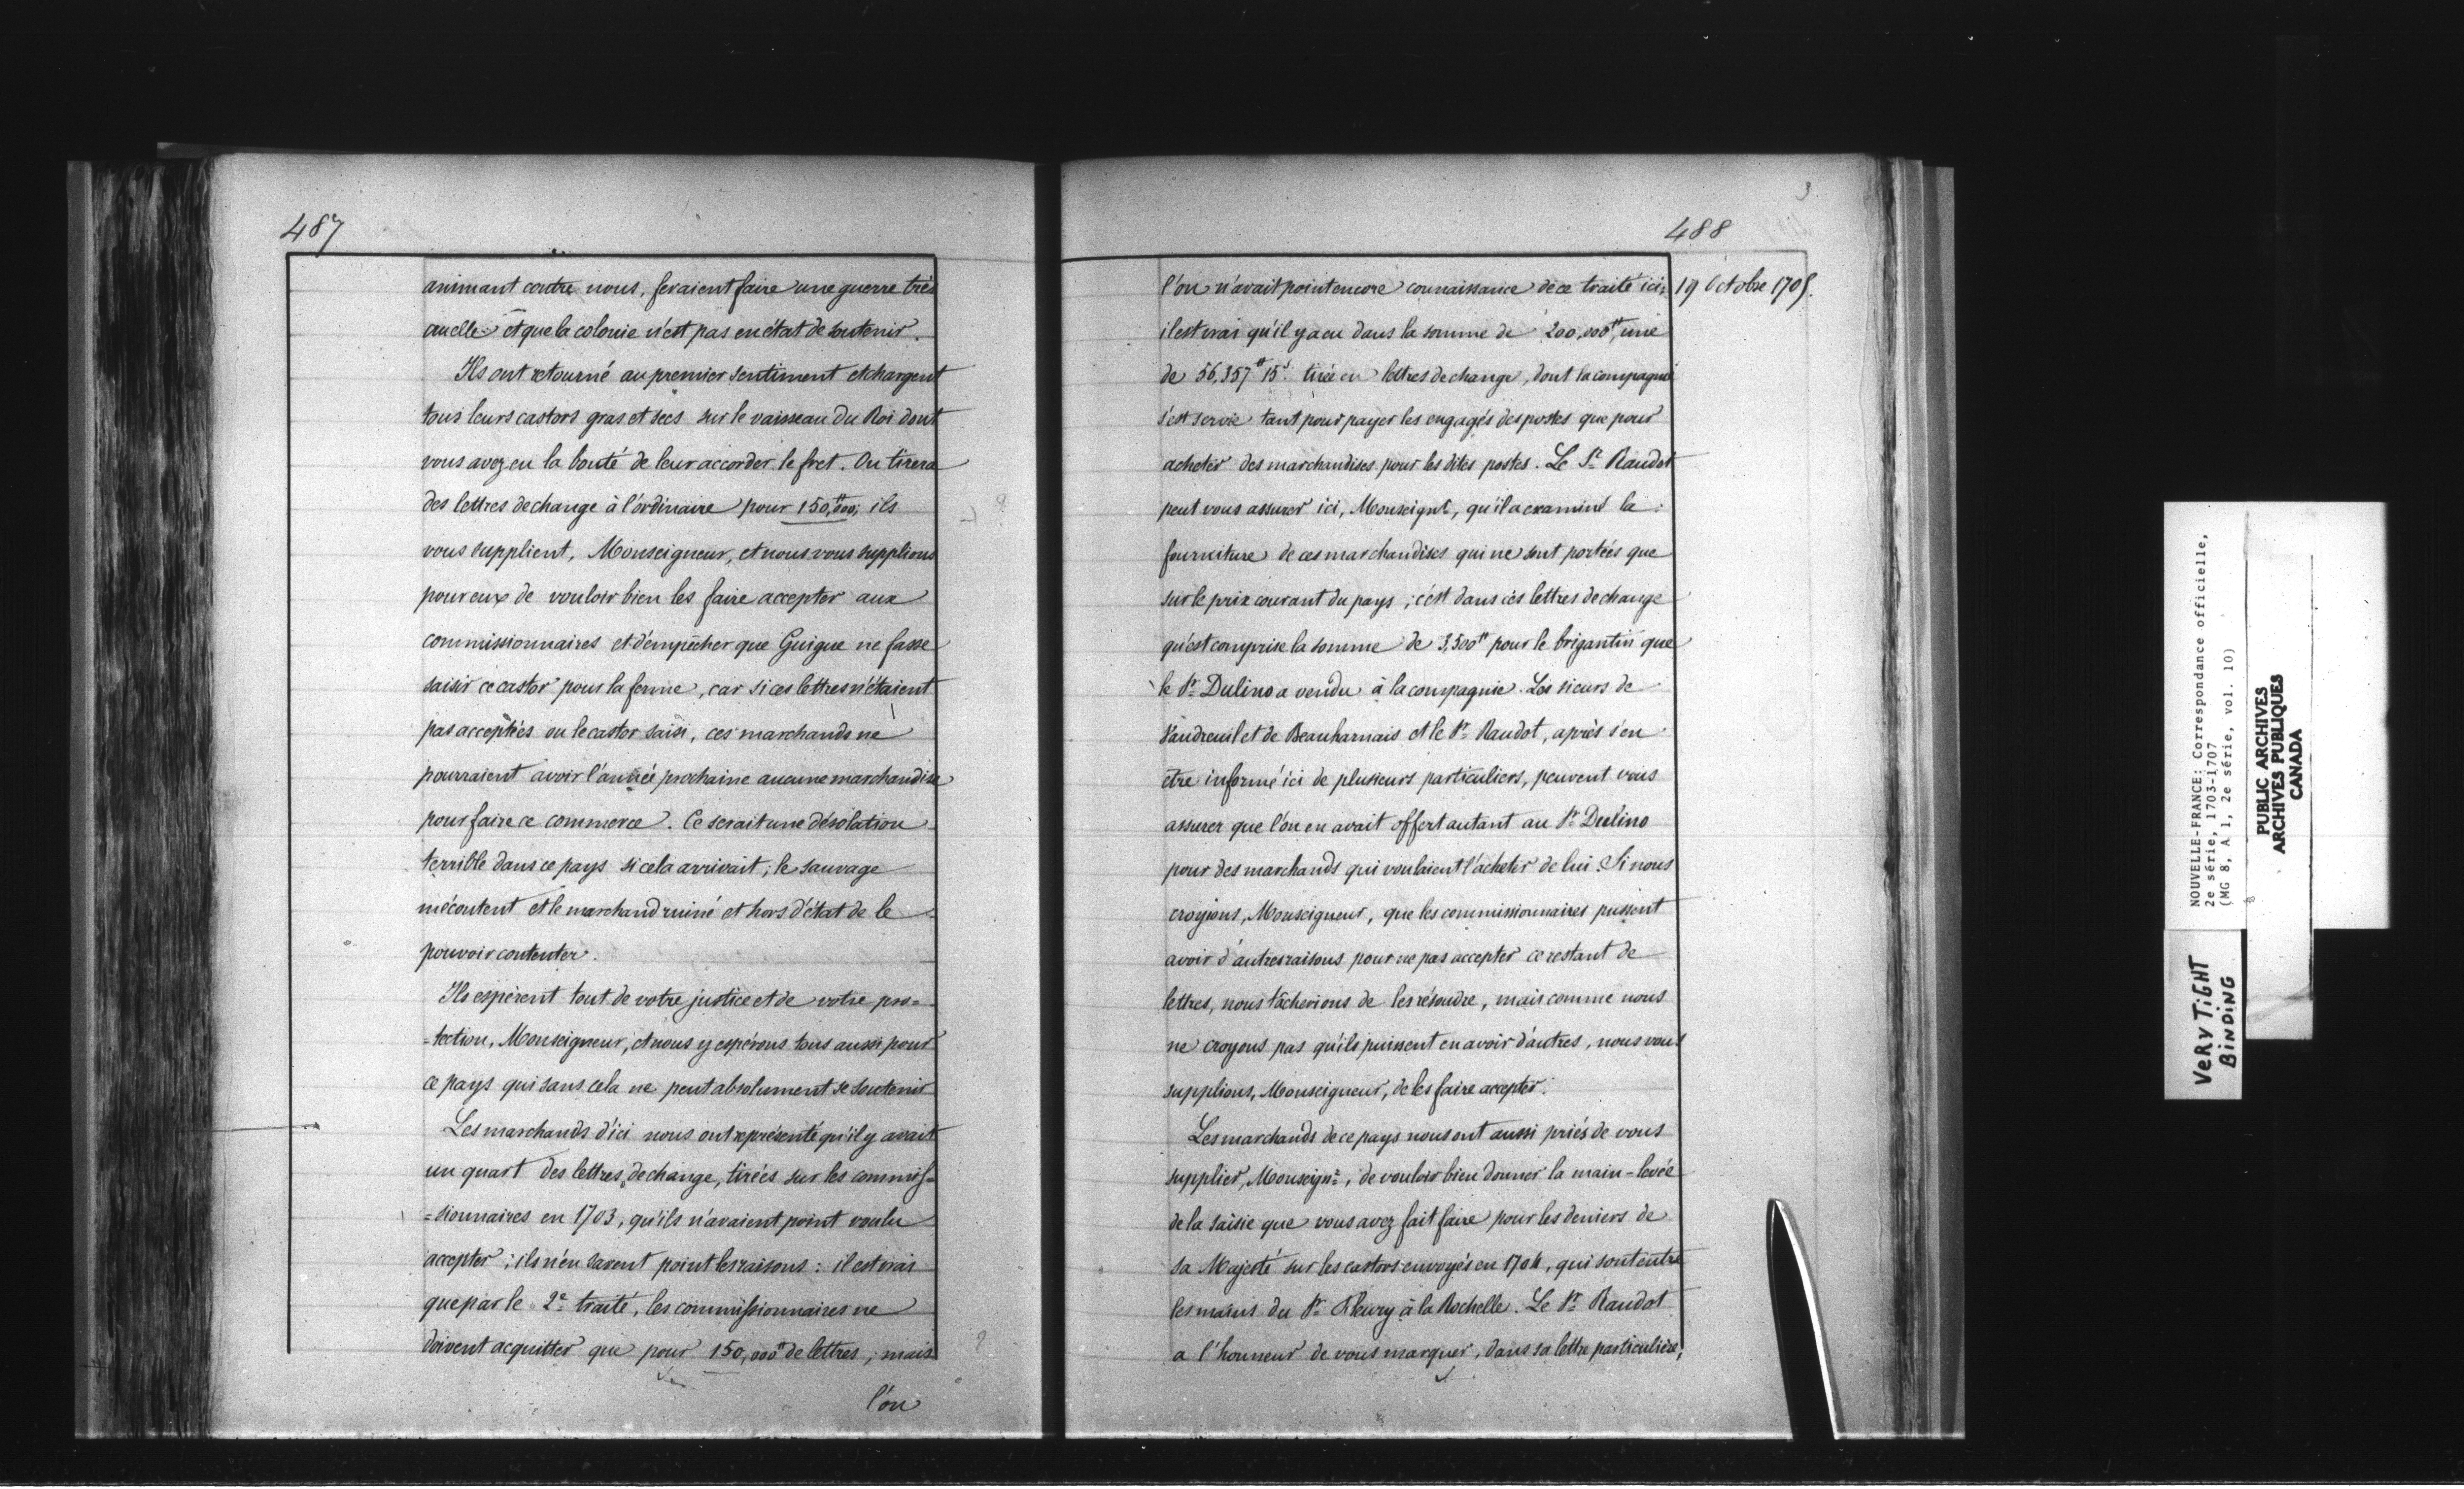 487
animant contre nous, feraient faire une guerre très
cruelle et que la colonie n'est pas en état de soutenir.
Ils ont retourné au premier sentiment et chargent
tous leurs castors gras et secs sur le vaisseau du Roi dont
vous avez eu la bonté de leur accorder le fret. On tirera
des lettres de change à l'ordinaire pour 150,000# ; ils
vous supplient, Monseigneur, et nous vous supplions
pour eux de vouloir bien les faire accepter aux
commissionnaires et d'empêcher que Guigue ne fasse
saisir ce castor pour la ferme, car si ces lettres n'étaient
pas acceptées ou le castor saisi, ces marchands ne
pourraient avoir l'année prochaine aucune marchandise
pour faire ce commerce. Ce serait une désolation
terrible dans ce pays si cela arrivait ; le sauvage
mécontent et le marchand ruiné et hors d'état de le
pouvoir contenter.
Ils espèrent tout de votre justice et de votre pro=
=tection, Monseigneur, et nous y espérons tous aussi pour
ce pays qui sans cela ne peut absolument se soutenir
Les marchands d'ici nous ont représenté qu'il y avait
un quart des lettres de change, tirées sur les commis=
=sionnaires en 1703, qu'ils n'avaient point voulu
accepter ; ils n'en savent point les raisons : il est vrai
que par le 2e traité, les commissionnaires ne
doivent acquitter que pour 150,000# de lettres ; mais
l'on
3
488
19 Octobre 1705.
l'on n'avait point encore connaissance de ce traité ici ;
il est vrai qu'il y a eu dans la somme de 200,000#, une
de 56,357# 15s. tirée en lettres de change, dont la compagnie
s'est servie tant pour payer les engagés des postes que pour
acheter des marchandises pour les dites postes. Le Sr. Raudot
peut vous assurer ici, Monseignr., qu'il a examiné la
fourniture de ces marchandises qui ne sont portées que
sur le prix courant du pays ; c'est dans ces lettres de change
qu'est comprise la somme de 3,500# pour le brigantin que
le Sr. Dulino a vendu à la compagnie. Les sieurs de
Vaudreuil et de Beauharnais et le Sr. Raudot, après s'en
être informé ici de plusieurs particuliers, peuvent vous
assurer que l'on en avait offert autant au Sr. Dulino
pour des marchands qui voulaient l'acheter de lui. Si nous
croyions, Monseigneur, que les commissionnaires pussent
avoir d'autres raisons pour ne pas accepter ce restant de
lettres, nous tâcherions de les résoudre, mais comme nous
ne croyons pas qu'ils puissent en avoir d'autres, nous vous
supplions, Monseigneur, de les faire accepter.
Les marchands de ce pays nous ont aussi priés de vous
supplier, Monseignr., de vouloir bien donner la main-levée
de la saisie que vous avez fait faire pour les deniers de
Sa Majesté sur les castors envoyés en 1704, qui sont entre
les mains du Sr. Fleury à la Rochelle. Le Sr. Raudot
a l'honneur de vous marquer, dans sa lettre particulière,
NOUVELLE-FRANCE: Correspondance officielle,
2e série, 1703-1707
(MG 8, A 1, 2e série, vol. 10)
PUBLIC ARCHIVES
ARCHIVES PUBLIQUES
CANADA
VERY TIGHT
BINDING